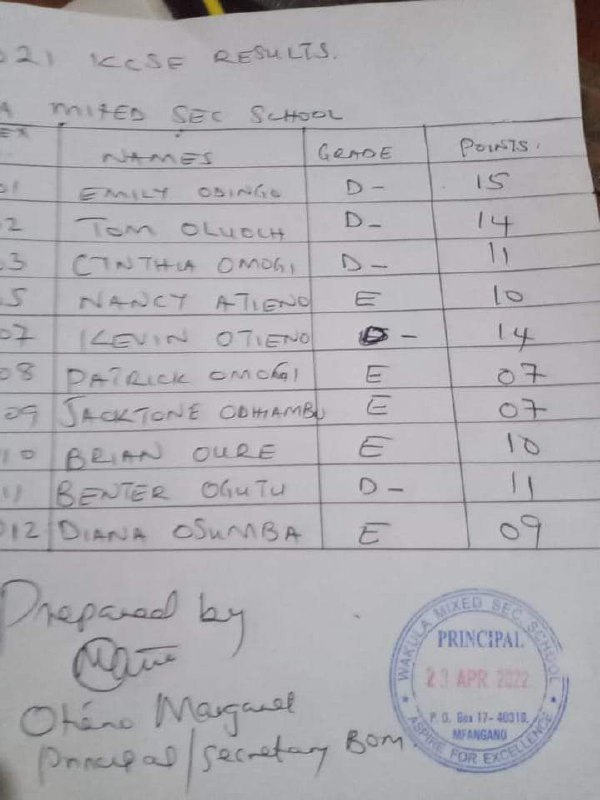 021 KCSE RESULTS.
A MIXED SEC SCHOOL
EX NAMES GRADE POINTS.
01 EMILY ODINGO D- 15
2 TOM OLUOCH D- 14
3 CYNTHIA OMOGI D- 11
5 NANCY ATIENO E 10
07 KEVIN OTIENO D- 14
08 PATRICK OMOGI E 07
09 JACKTONE ODHIAMBO E 07
10 BRIAN OURE E 10
11 BENTER OGUTU D- 11
012 DIANA OSUMBA E 09
Prepared by
Otieno Margaret
Principal/Secretary BOM
WAKULA MIXED SEC. SCHOOL
PRINCIPAL
23 APR 2022
P. O. Box 17-40319,
MFANGANO
ASPIRE FOR EXCELLENCE